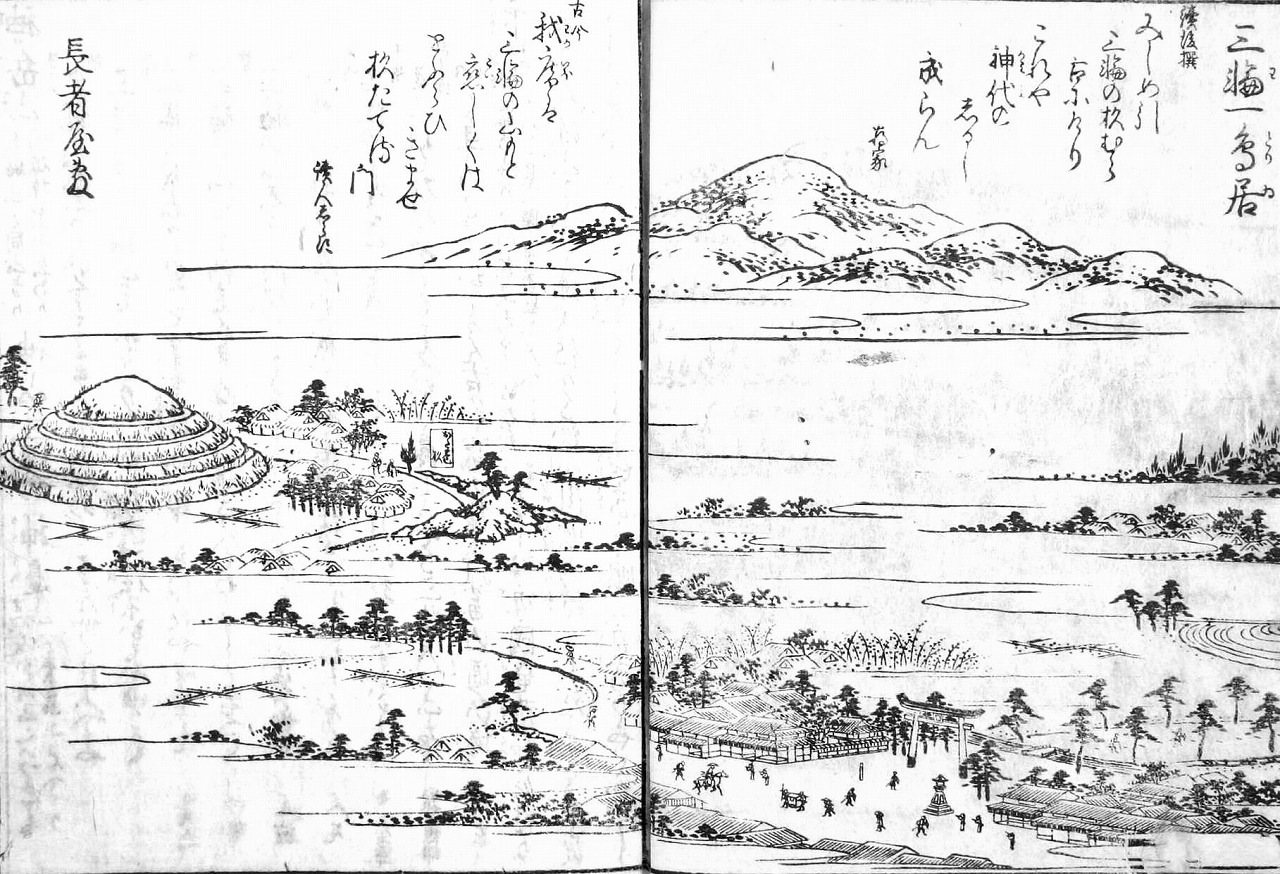 三輪一鳥居
續後撰
みしめ引
三輪の杦むら
古にけり
これや
神代の
志るし
成らん
古今
我庵は
三輪の山もと
恋しくは
とふらひ
きませ
杦たてる
門
讀人志らす
長者屋敷